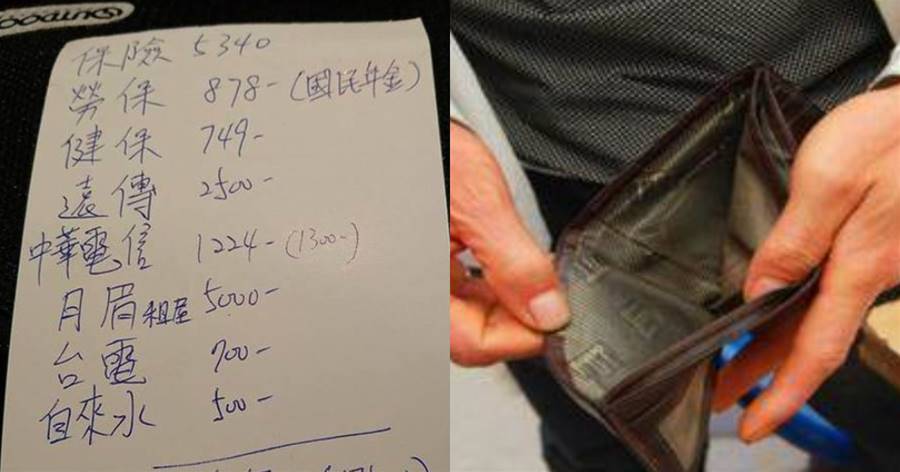 保險 5340
勞保 878-(國民年金)
健保 749-
遠傳 2500-
中華電信 1224-(1300-)
月眉租屋 5000-
台電 700-
自來水 500-